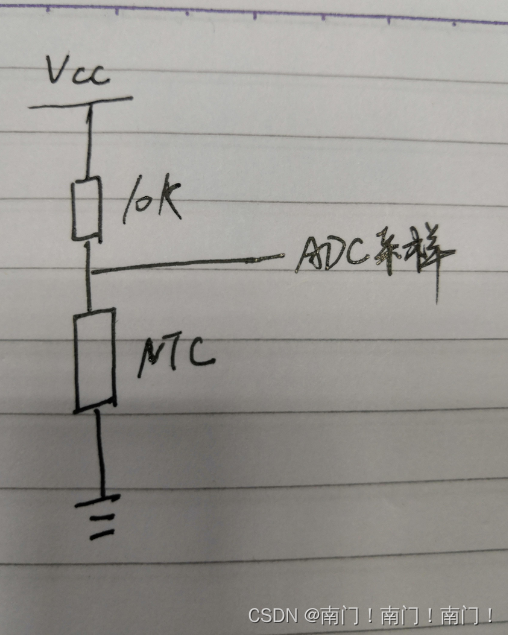 Vcc
10K
ADC采样
NTC
CSDN @南门！南门！南门！